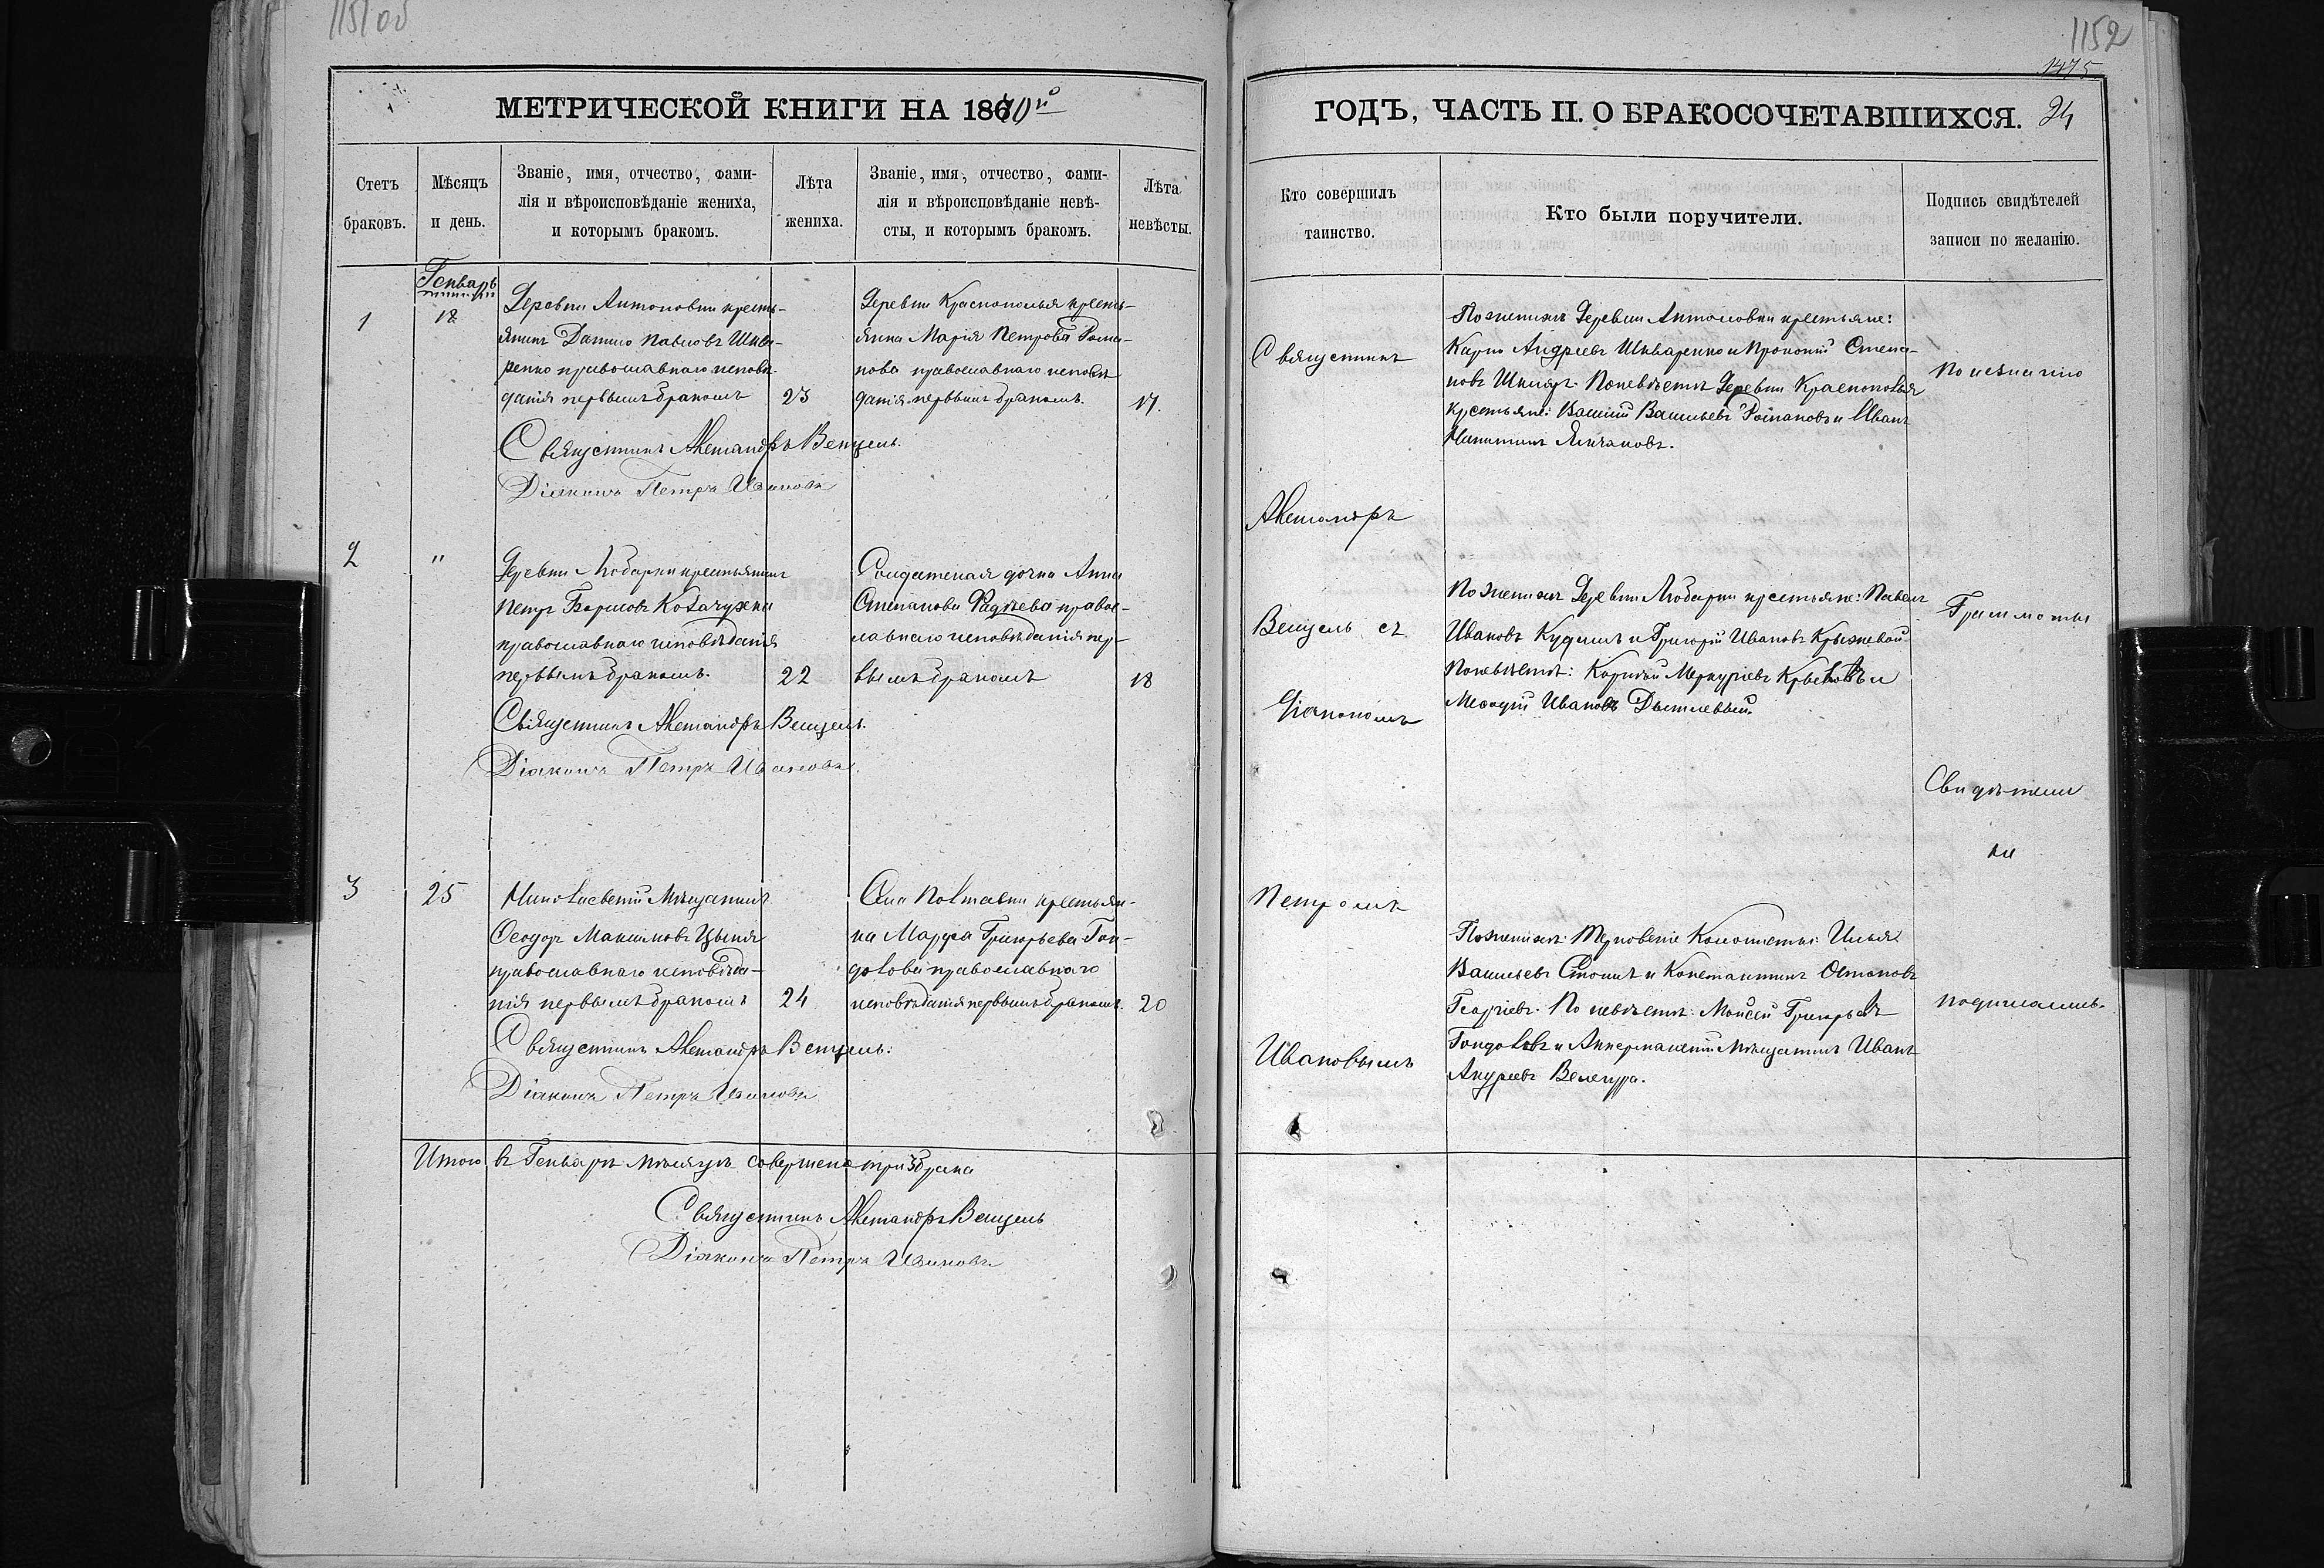 1152
1475
МЕТРИЧЕСКОЙ КНИГИ НА 1870й
Счетъ браковъ.
Мѣсяцъ и день.
Званіе, имя, отчество, фами-
лія и вѣроисповѣданіе жениха,
и которымъ бракомъ.
Лѣта жениха.
Званіе, имя, отчество, фами-
лія и вѣроисповѣданіе невѣ-
сты, и которымъ бракомъ.
Лѣта невѣсты.
Генварь
1
18
Деревни Антоновки кресть-
янинъ Данило Павловъ Шква-
ренко православнаго исповѣ-
данія первымъ бракомъ
23
Деревни Краснополья кресть-
янка Марія Петрова Рома-
нова православнаго исповѣ
данія первымъ бракомъ.
17.
Священникъ Александръ Венцель.
Діаконъ Петръ Ивановъ
2
"
Деревни Любарки крестьянинъ
Петръ Борисовъ
православнаго исповѣданія
первымъ бракомъ.
22
Солдатская дочка Анна
Степанова Фадѣева право-
славнаго исповѣданія пер-
вымъ бракомъ
18
Священникъ Александръ Венцель.
Діаконъ Петръ Ивановъ.
3
25
Николаевскій Мѣщанинъ
Ѳеодоръ Максимовъ
православнаго исповѣда-
нія первымъ бракомъ
24
Села Полтавки крестьян-
ка Марѳа Григорьева Гон-
долова православнаго
исповѣданія первымъ бракомъ.
20
Священникъ Александръ Венцель:
Діаконъ Петръ Ивановъ
Итого въ Генварѣ мѣсяцѣ совершено три 3 брака
Священникъ Александръ Венцель
Діаконъ Петръ Ивановъ
ГОДЪ, ЧАСТЬ II. О БРАКОСОЧЕТАВШИХСЯ.
24
Кто совершилъ таинство.
Кто были поручители.
Подпись свидѣтелей записи по желанію.
Священникъ
Александръ
Венцель съ
Діакономъ
Петромъ
Ивановымъ
По женихѣ Деревни Антоновки крестьяне:
Карпо Андреевъ Шкваренко и Прокопій Степа-
новъ По невѣстѣ Деревни Краснополья
крестьяне: Василій Васильевъ Романовъ и Иванъ
Никитинъ
По женихѣ Деревни Любарки крестьяне: Павелъ
Ивановъ и Григорій Ивановъ
По невѣстѣ: Корнѣй Меркуріевъ и
Меѳодій Ивановъ
По женихѣ: Терновскіе Колонисты: Илья
Васильевъ Стоилъ и Константинъ Остановъ
Георгіевъ. По невѣстѣ: Моисей Григорьевъ
Гондоловъ и Аккерманскій Мѣщанинъ Иванъ
Андреевъ
По незнанію
Грамоты
Свидѣтели
не
подписались.